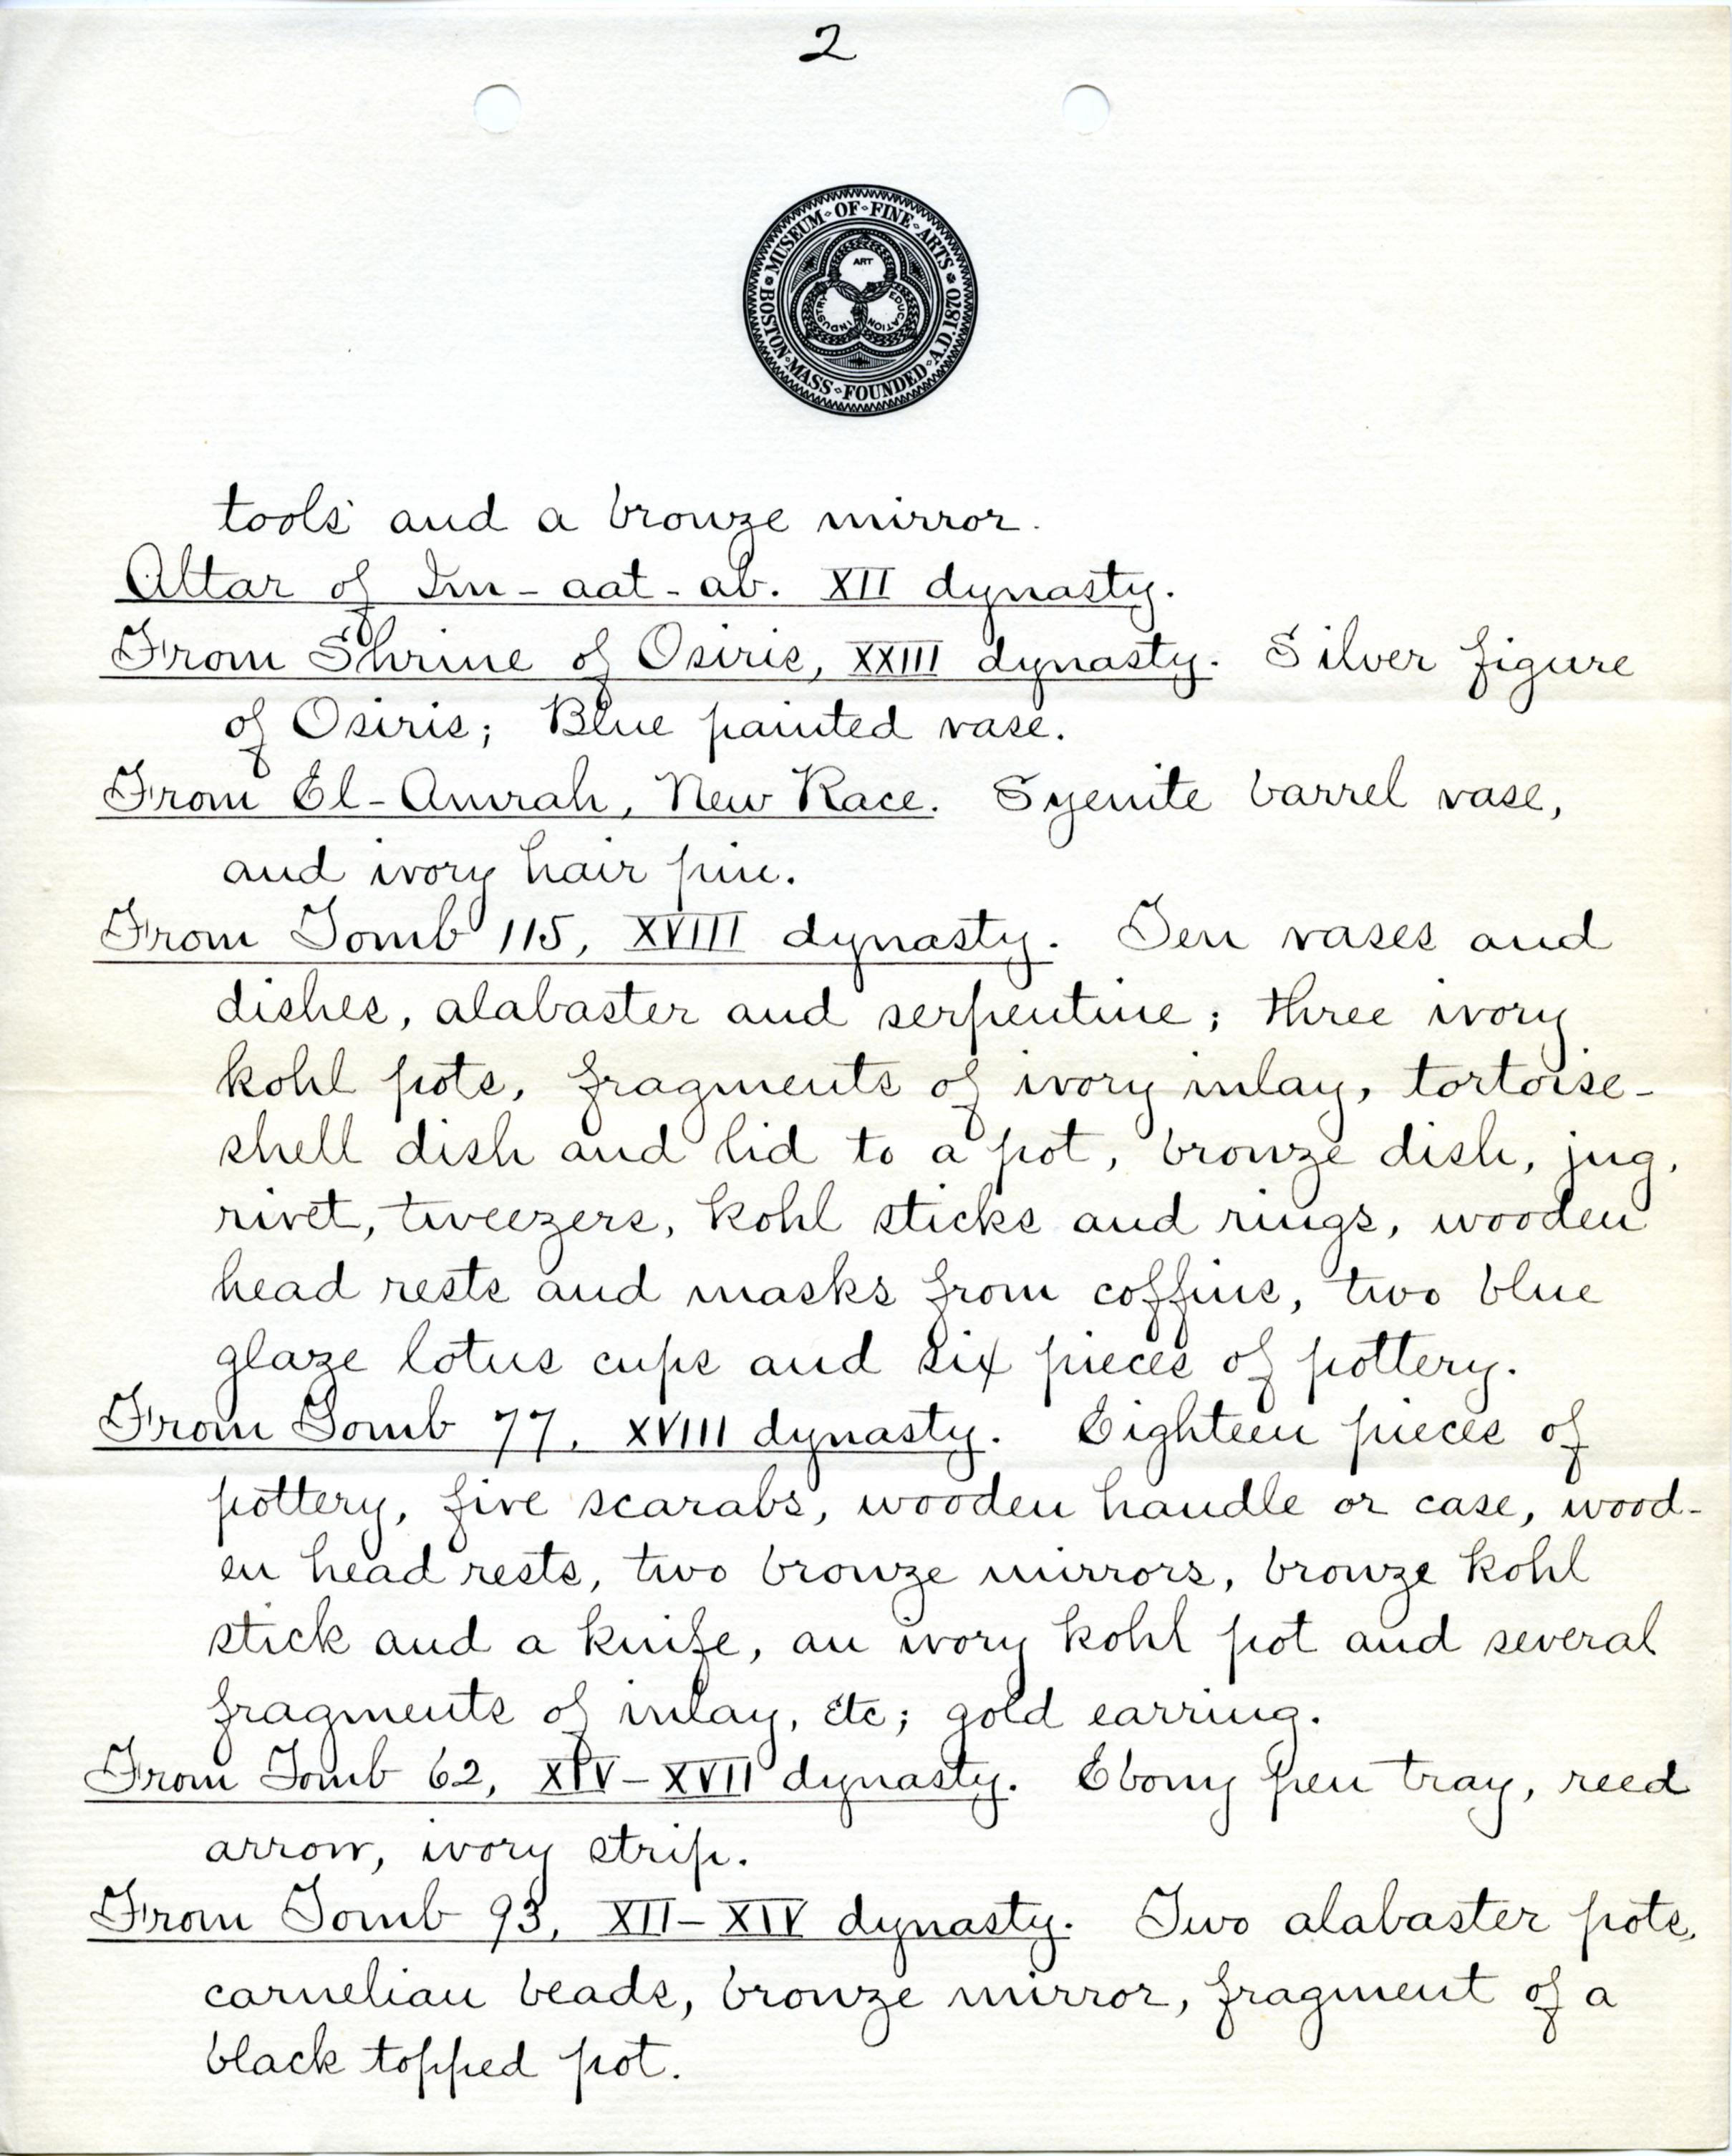 2
MUSEUM OF FINE ARTS
BOSTON MASS FOUNDED A.D. 1870
ART
INDUSTRY
EDUCATION
tools and a bronze mirror.
Altar of Im-aat-ab. XII dynasty.
From Shrine of Osiris, XXIII dynasty. Silver figure
of Osiris; Blue painted vase.
From El-Amrah, New Race. Syenite barrel vase,
and ivory hair pin.
From Tomb 115, XVIII dynasty. Ten vases and
dishes, alabaster and serpentine; three ivory
kohl pots, fragments of ivory inlay, tortoise-
shell dish and lid to a pot, bronze dish, jug,
rivet, tweezers, kohl sticks and rings, wooden
head rests and masks from coffins, two blue
glaze lotus cups and six pieces of pottery.
From Tomb 77, XVIII dynasty. Eighteen pieces of
pottery, five scarabs, wooden handle or case, wood-
en head rests, two bronze mirrors, bronze kohl
stick and a knife, an ivory kohl pot and several
fragments of inlay, etc; gold earring.
From Tomb 62, XIV-XVII dynasty. Ebony pen tray, reed
arrow, ivory strip.
From Tomb 93, XII-XIV dynasty. Two alabaster pots,
carnelian beads, bronze mirror, fragment of a
black topped pot.